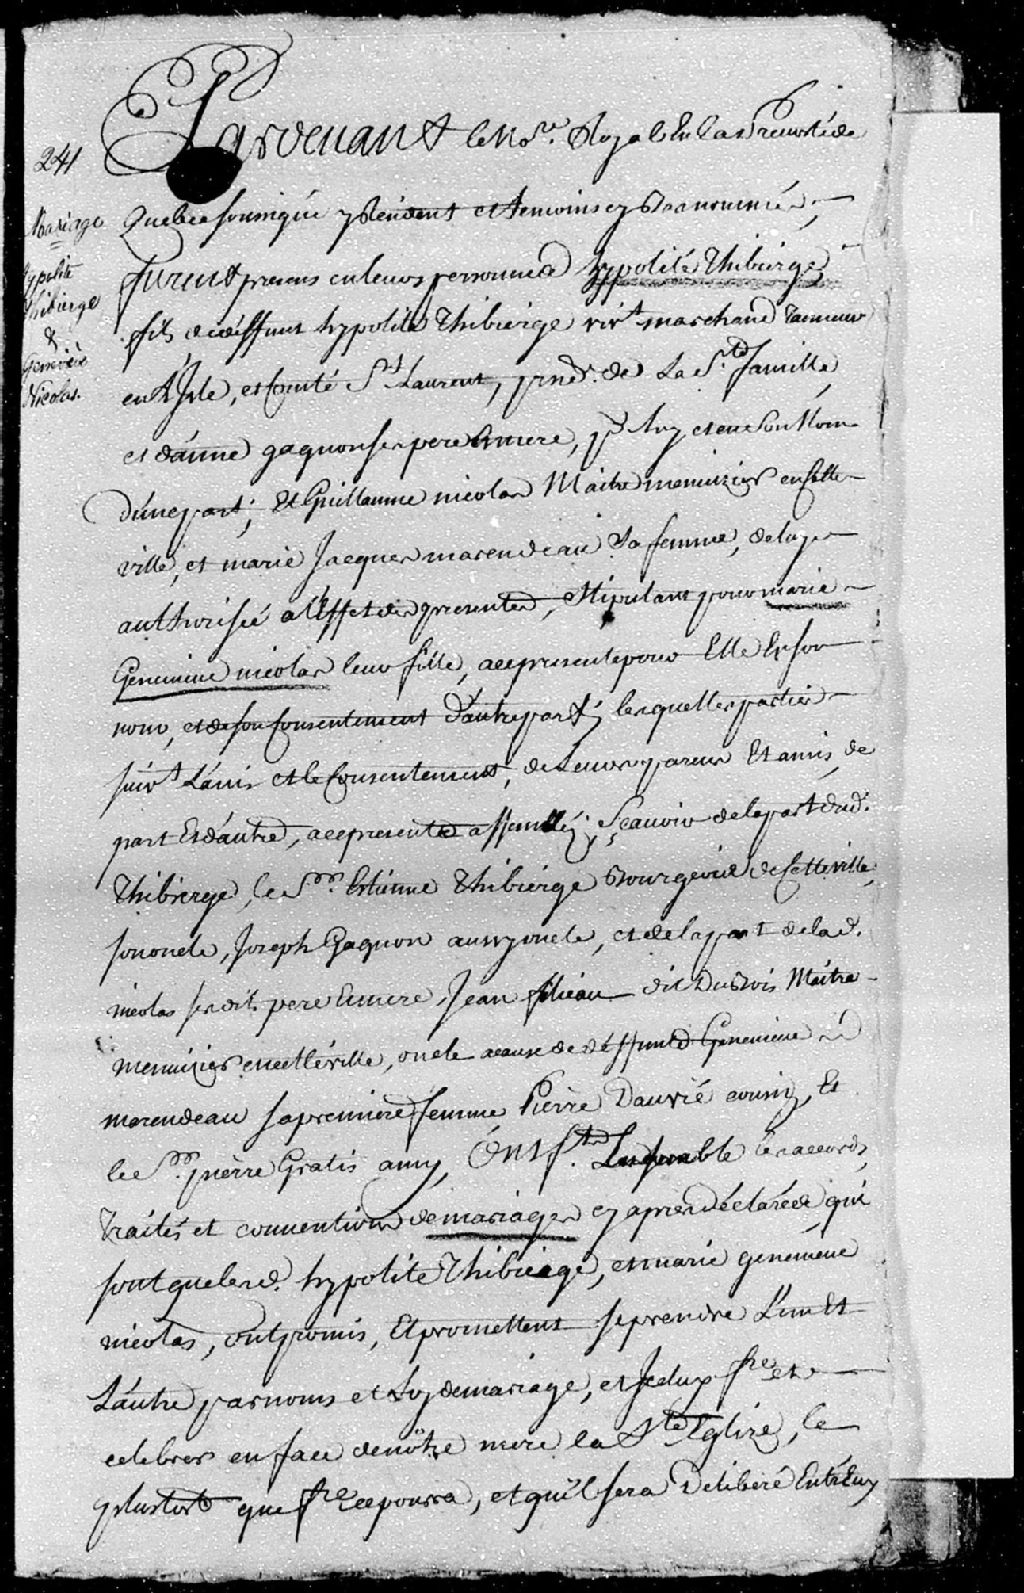 241
Mariage
hypolite
thibierge
&
Genevieve
Nicolas.
Pardevant le No.re Royal En la Prevosté de
Quebec soussigné y Résident et temoins cy bas nommés, —
furent presens en leurs personnes hypolite Thibierge,
fils de deffunt hypolite Thibierge viv.t marchand Tanneur
en L'Isle, et Comté S.t Laurent, de La S.te famille,
et d'anne gagnon ses pere & mere, p.r luy et en son Nom
d'une part; Et Guillaume nicolas Maitre menuizier en cette —
ville, et marie Jacques marendeau Sa femme, de luy —
authorisée a l'Effet des presentes, Stipulant pour marie —
Genevieve nicolas leur fille, a ce presente pour Elle En son
nom, et de son Consentement d'autre part; lesquelles parties —
suiv.t L'avis et le Consentement, de Leurs parens Et amis, de
part Et d'autre, a ce presents assemblés; Sçavoir de la part dud.
Thibierge, le S.r Estienne Thibierge Bourgeois de Cette ville,
son oncle, Joseph Gagnon aussy oncle, et de la part de lad.
nicolas sesdit. pere & mere, Jean filieau dit DuBois Maitre —
menuizier en cette ville, oncle a cause de deffunte Genevieve
marendeau sa premiere femme, Pierre Dauvié cousin, Et
le S.r pierre Gratis amy, Ont f.t Ensemble les accords,
Traités et conventions de mariage cy apres déclarés, qui
sont que lesd. hypolite Thibierge, et marie genevieve
nicolas, ont promis, Et promettent se prendre L'un Et
L'autre par noms et Loy de mariage, et Iceluy f.re et —
celebrer en face de nôtre mere la S.te Eglise, le
plustost que f.re ce pourra, et qu'il sera Deliberé Entr'Eux